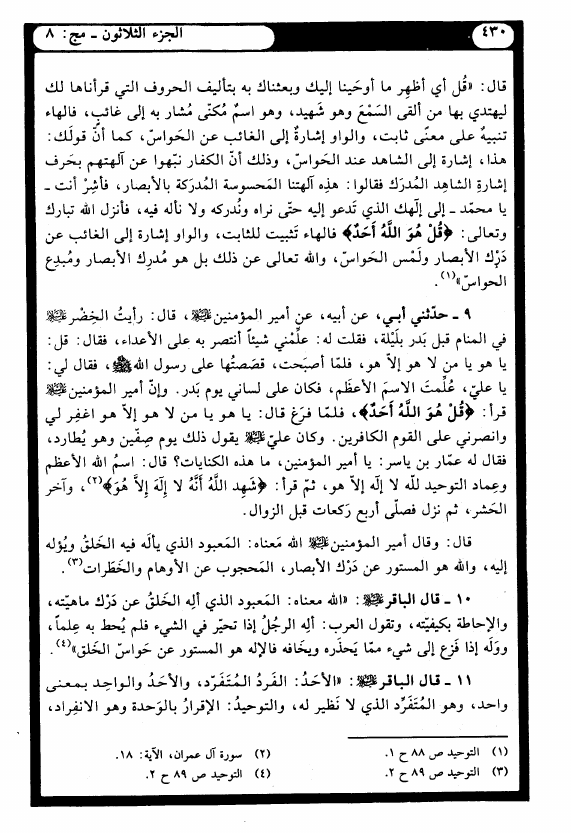 ٤٣٠
الجزء الثلاثون ـ مج: ٨
قال: «قُل أي أظهِر ما أوحَينا إليك وبعثناك به بتأليف الحروف التي قرأناها لك
ليهتدي بها من ألقى السَّمْعَ وهو شَهيد، وهو اسمٌ مُكنّى مُشار به إلى غائبٍ، فالهاء
تنبيهٌ على معنّى ثابت، والواو إشارةٌ إلى الغائب عن الحَواسّ، كما أنَّ قولَك:
هذا، إشارة إلى الشاهد عند الحَواسّ، وذلك أنّ الكفار نبّهوا عن آلهتهم بحَرف
إشارةِ الشاهِد المُدرَك فقالوا: هذِه آلهتنا المَحسوسة المُدرَكة بالأبصار، فأشِرْ أنت ـ
يا محمّد ـ إلى إلٰهك الذي تَدعو إليه حتّى نراه ونُدركه ولا نأله فيه، فأنزل الله تبارك
وتعالى: ﴿قُلْ هُوَ اللَّهُ أَحَدٌ﴾ فالهاء تَثبيت للثابت، والواو إشارة إلى الغائب عن
دَرْك الأبصار ولَمْس الحَواسّ، والله تعالى عن ذلك بل هو مُدرِك الأبصار ومُبدِع
الحواسّ»(١).
٩ ـ حدّثني أبـي، عن أبيه، عن أمير المؤمنين ﷺ، قال: رأيتُ الخِضْر ﷺ
في المنام قبل بَدر بلَيْلة، فقلت له: علِّمْني شيئاً أنتصر به على الأعداء، فقال: قل:
يا هو يا من لا هو إلاّ هو، فلمّا أصبَحت، قصَصتُها على رسول الله ﷺ، فقال لي:
يا عليّ، عُلِّمتَ الاسمَ الأعظَم، فكان على لساني يوم بَدر. وإنّ أمير المؤمنين ﷺ
قرأ: ﴿قُلْ هُوَ اللَّهُ أَحَدٌ﴾، فلمّا فرَغ قال: يا هو يا من لا هو إلاّ هو اغفِر لي
وانصرني على القوم الكافرين. وكان عليّ ﷺ يقول ذلك يوم صِفّين وهو يُطارد،
فقال له عمّار بن ياسر: يا أمير المؤمنين، ما هذه الكنايات؟ قال: اسمُ الله الأعظم
وعِماد التوحيد للّه لا إلٰه إلاّ هو، ثمّ قرأ: ﴿شَهِدَ اللَّهُ أَنَّهُ لَا إِلَهَ إِلَّا هُوَ﴾(٢)، وآخر
الحَشر، ثم نزل فصلّى أربع رَكعات قبل الزوال.
قال: وقال أمير المؤمنين ﷺ الله مَعناه: المَعبود الذي يألَه فيه الخَلقُ ويُؤله
إليه، والله هو المستور عن دَرْك الأبصار، المَحجوب عن الأوهام والخَطَرات(٣).
١٠ ـ قال الباقر ﷺ: «الله معناه: المَعبود الذي أَلِه الخَلقُ عن دَرْك ماهيّته،
والإحاطة بكيفيّته، وتقول العرب: أَلِه الرجُلُ إذا تحيّر في الشيء فلم يُحط به عِلماً،
ووَلَه إذا فَزِع إلى شيء ممّا يَحذَره ويخافه فالإله هو المستور عن حَواسّ الخَلق»(٤).
١١ ـ قال الباقر ﷺ: «الأحَدُ: الفَردُ المُتَفَرّد، والأحَدُ والواحِد بـمعنى
واحد، وهو المُتَفَرِّد الذي لا نَظير له، والتوحيدُ: الإقرارُ بالوَحدة وهو الانفِراد،
(١) التوحيد ص ٨٨ ح ١.
(٢) سورة آل عمران، الآية: ١٨.
(٣) التوحيد ص ٨٩ ح ٢.
(٤) التوحيد ص ٨٩ ح ٢.